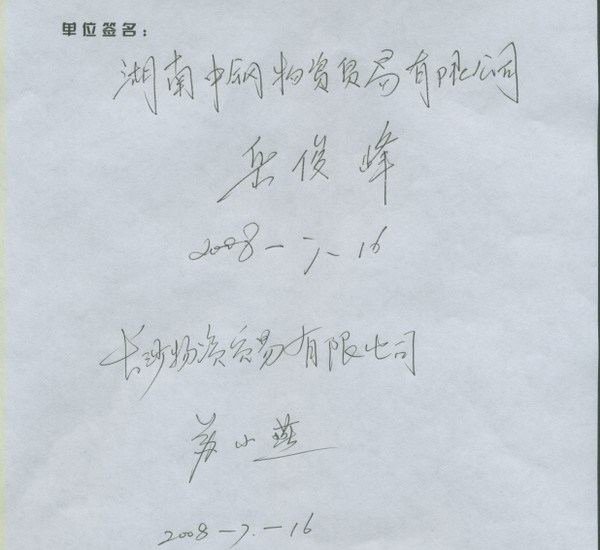 单位签名：
湖南中钢物资贸易有限公司
岳俊峰
2008-7-16
长沙物资贸易有限公司
苏小燕
2008-7-16